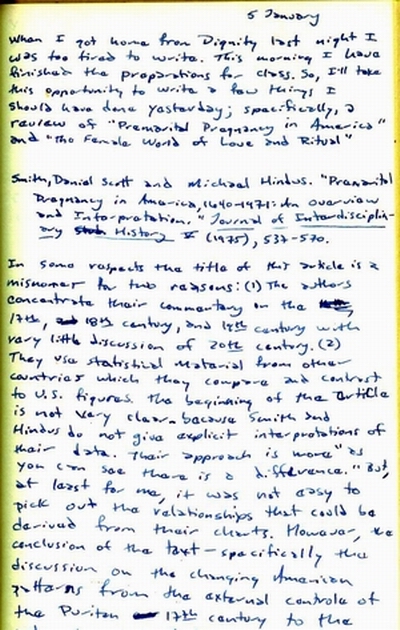 5 January
When I got home from Dignity last night I
was too tired to write. This morning I have
finished the preparations for class. So, I'll take
this opportunity to write a few things I
should have done yesterday; specifically, a
review of "Premarital Pregnancy in America"
and "The Female World of Love and Ritual"
Smith, Daniel Scott and Michael Hindus. "Premarital
Pregnancy in America, 1640-1971: An overview
and Interpretation." Journal of Interdisciplin-
ary History V (1975), 537-570.
In some respects the title of this article is a
misnomer for two reasons: (1) The authors
concentrate their commentary on the
17th, 18th century, and 19th century with
very little discussion of 20th century. (2)
They use statistical material from other
countries which they compare and contrast
to U.S. figures. The beginning of the article
is not very clear because Smith and
Hindus do not give explicit interpretations of
their data. Their approach is more "as
you can see there is a difference." But,
at least for me, it was not easy to
pick out the relationships that could be
derived from their charts. However, the
conclusion of the text - specifically the
discussion on the changing American
patterns from the external controls of
the Puritan 17th century to the